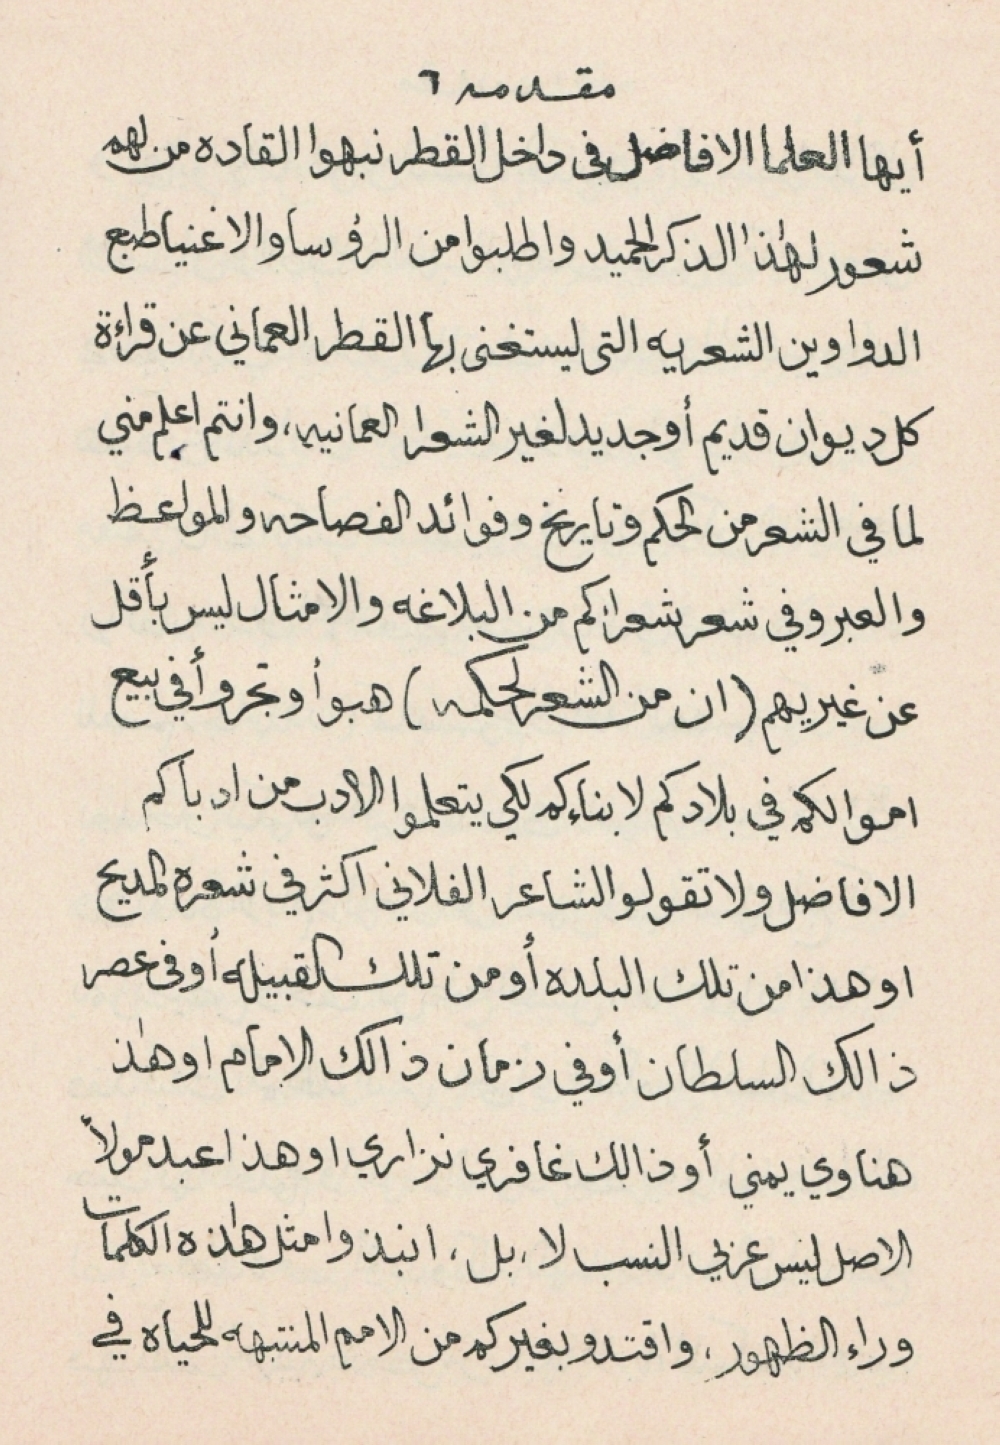 مقدمه ٦
أيها العلما الافاضل في داخل القطر نبهوا القاده من لهم
شعور لهٰذا الذكر الحميد واطلبوا من الرؤسا والاغنيا طبع
الدواوين الشعريه التي ليستغنى بها القطر العماني عن قراءة
كل ديوان قديم أو جديد لغير الشعرا العمانيه، وانتم اعلم مني
لما في الشعر من الحكم وتايريخ وفوائد الفصاحه والمواعظ
والعبر وفي شعر شعرائكم من البلاغه والامثال ليس بأقل
عن غيريهم (ان من الشعر لحكمه) هبوأ وتجروأ في بيع
اموالكم في بلادكم لابناءكم لكي يتعلموا الادب من ادبأكم
الافاضل ولا تقولو الشاعر الفلاني اكثر في شعره المديح
او هذا من تلك البلده أو من تلك القبيله أو في عصر
ذالك السلطان أو في زمان ذالك الامام او هٰذ
هناوي يمني أو ذالك غافري نزاري او هذا عبد مولأ
الاصل ليس عربي النسب لا، بل، انبذوا مثل هٰذه الكلمات
وراء الظهور، واقتدو بغيركم من الامم المنتبهه للحياه في